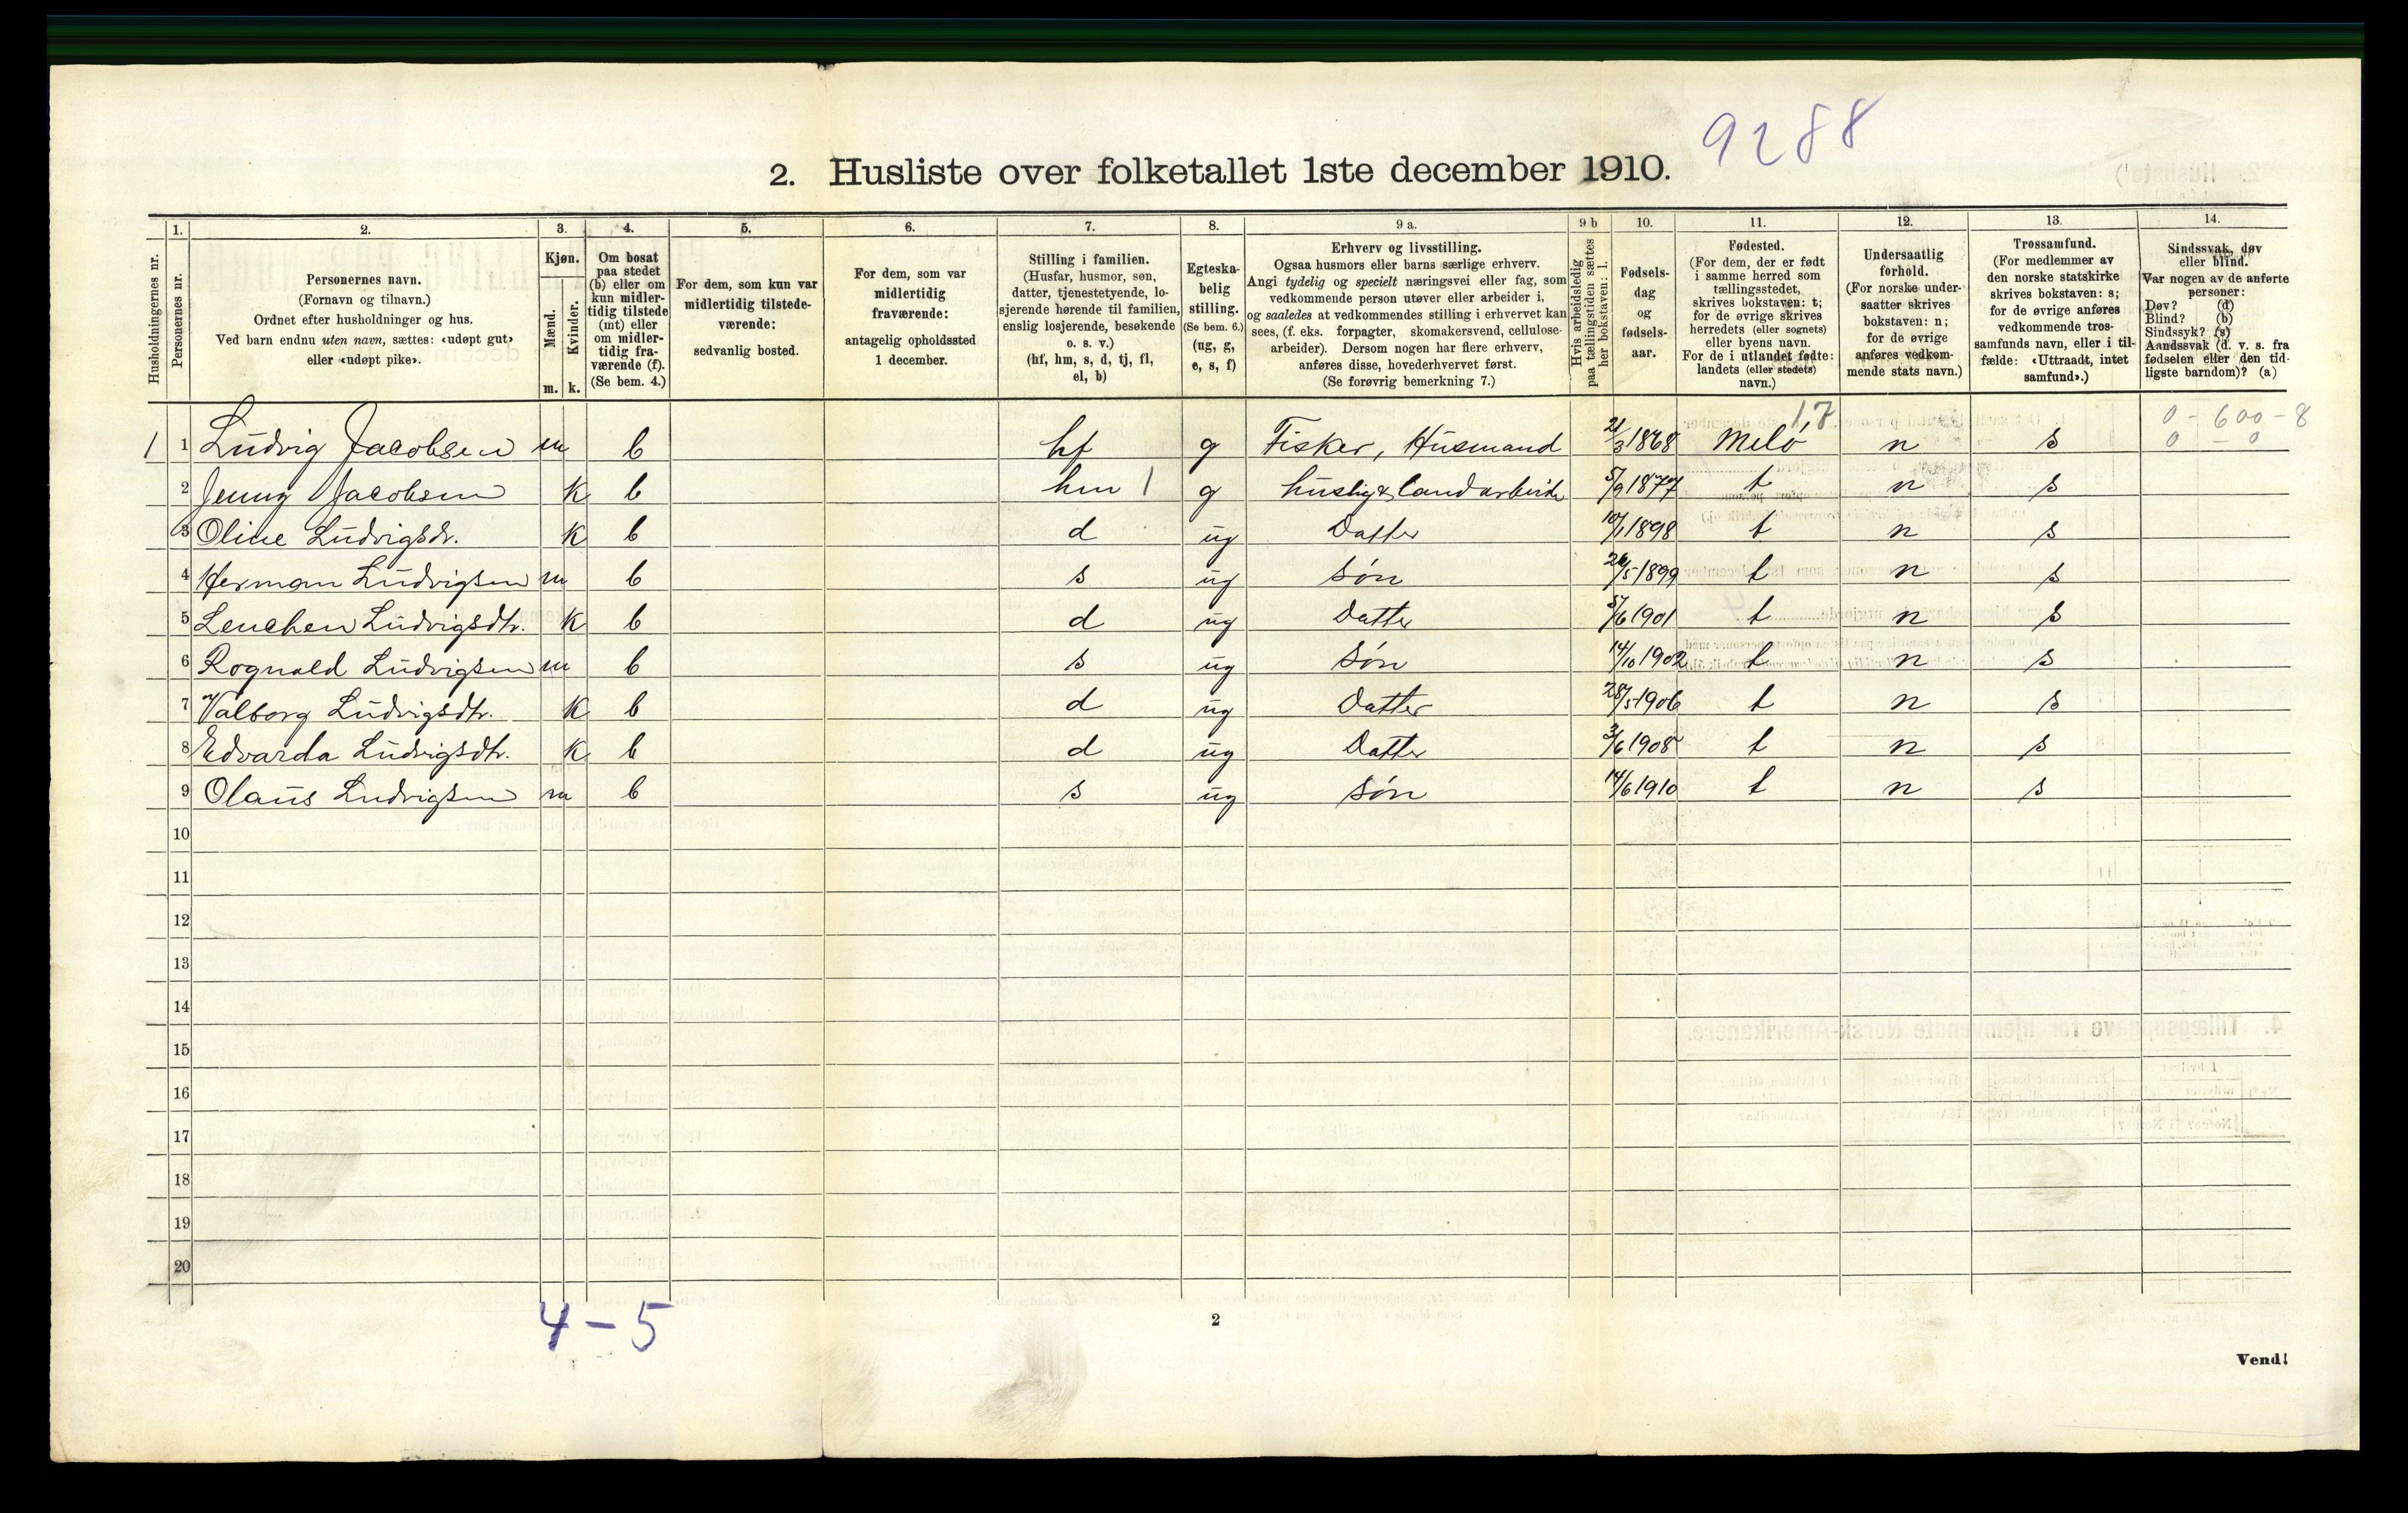 9288
2. Husliste over folketallet 1ste december 1910.
Husholdningernes nr.
1. Personernes nr.
2. Personernes navn.
(Fornavn og tilnavn.)
Ordnet efter husholdninger og hus.
Ved barn endnu uten navn, sættes: «udøpt gut»
eller «udøpt pike».
3. Kjøn.
Mænd. m.
Kvinder. k.
4. Om bosat
paa stedet
(b) eller om
kun midler-
tidig tilstede
(mt) eller
om midler-
tidig fra-
værende (f).
(Se bem. 4.)
5. For dem, som kun var
midlertidig tilstede-
værende:
sedvanlig bosted.
6. For dem, som var
midlertidig
fraværende:
antagelig opholdssted
1 december.
7. Stilling i familien.
(Husfar, husmor, søn,
datter, tjenestetyende, lo-
sjerende hørende til familien,
enslig losjerende, besøkende
o. s. v.)
(hf, hm, s, d, tj, fl,
el, b)
8. Egteska-
belig
stilling.
(Se bem. 6.)
(ug, g,
e, s, f)
9 a. Erhverv og livsstilling.
Ogsaa husmors eller barns særlige erhverv.
Angi tydelig og specielt næringsvei eller fag, som
vedkommende person utøver eller arbeider i,
og saaledes at vedkommendes stilling i erhvervet kan
sees, (f. eks. forpagter, skomakersvend, cellulose-
arbeider). Dersom nogen har flere erhverv,
anføres disse, hovederhvervet først.
(Se forøvrig bemerkning 7.)
9 b Hvis arbeidsledig
paa tællingstiden sættes
her bokstaven: l.
10. Fødsels-
dag
og
fødsels-
aar.
11. Fødested.
(For dem, der er født
i samme herred som
tællingsstedet,
skrives bokstaven: t;
for de øvrige skrives
herredets (eller sognets)
eller byens navn.
For de i utlandet fødte:
landets (eller stedets)
navn.)
12. Undersaatlig
forhold.
(For norske under-
saatter skrives
bokstaven: n;
for de øvrige
anføres vedkom-
mende stats navn.)
13. Trossamfund.
(For medlemmer av
den norske statskirke
skrives bokstaven: s;
for de øvrige anføres
vedkommende tros-
samfunds navn, eller i til-
fælde: «Uttraadt, intet
samfund».)
14. Sindssvak, døv
eller blind.
Var nogen av de anførte
personer:
Døv? (d)
Blind? (b)
Sindssyk? (s)
Aandssvak (d. v. s. fra
fødselen eller den tid-
ligste barndom)? (a)
17 0 - 600 - 8
1 1 Ludvig Jacobsen m b hf g Fisker, Husmand 21/3 1868 Melö n s 0 - 0
2 Jenny Jacobsen k b hm 1 g huslig & landarbeide 5/9 1877 t n s
3 Oline Ludvigsdr. k b d ug Datter 10/1 1898 t n s
4 Herman Ludvigsen m b s ug Søn 26/5 1899 t n s
5 Lenchen Ludvigsdtr. k b d ug Datter 5/6 1901 t n s
6 Rognald Ludvigsen m b s ug Søn 14/10 1902 t n s
7 Valborg Ludvigsdtr. k b d ug Datter 28/5 1906 t n s
8 Edvarda Ludvigsdtr. k b d ug Datter 3/6 1908 t n s
9 Olaus Ludvigsen m b s ug Søn 14/6 1910 t n s
10
11
12
13
14
15
16
17
18
19
20
4 - 5
2
Vend!